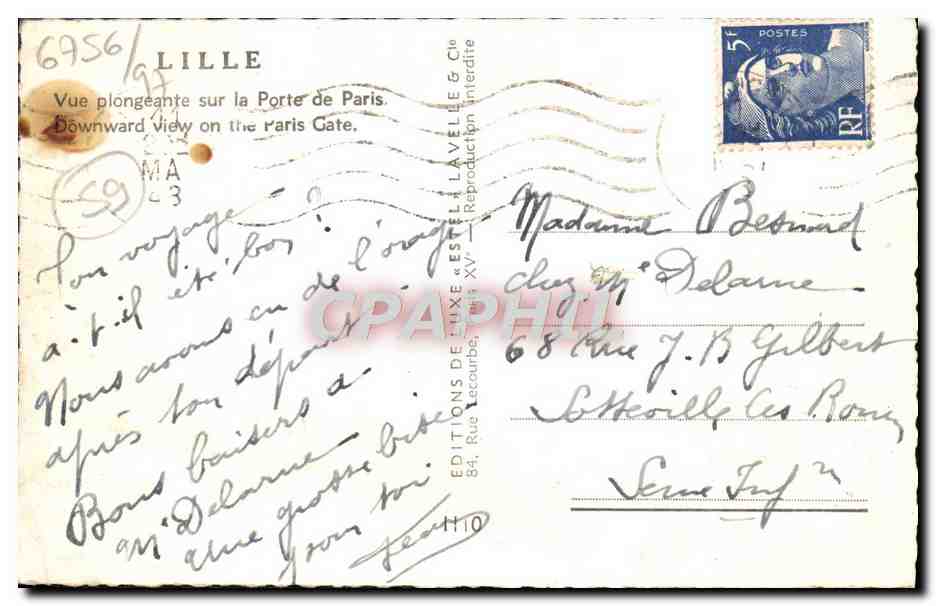 6756/97
LILLE
Vue plongeante sur la Porte de Paris.
Downward view on the Paris Gate.
MA
3
59
POSTES
5F
RF
Ton voyage
a-t-il été bon ?
Nous avons eu de l'orage
après ton départ.
Bons baisers à
Me Delarue
une grosse bise
pour toi
Jean
EDITIONS DE LUXE «ESTEL» LAVELLE & Cie
84, Rue Lecourbe, Paris XVe — Reproduction interdite
H 10
CPAPHIL
Madame Besnard
chez Me Delarue
68 Rue J. B Gilbert
Sotteville les Rouen
Seine Infre